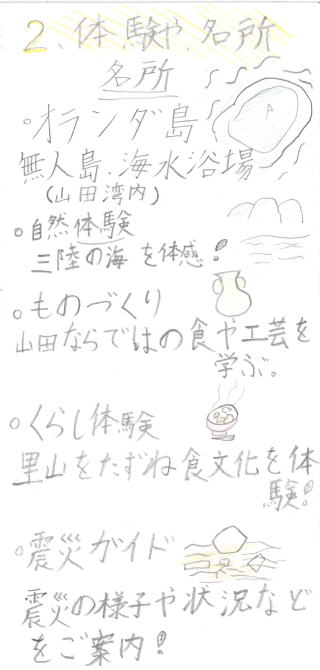 2、体験や、名所
名所
○オランダ島
無人島、海水浴場
(山田湾内)
○自然体験
三陸の海を体感!
○ものづくり
山田ならではの食や工芸を
学ぶ。
○くらし体験
里山をたずね食文化を体
験!
○震災ガイド
震災の様子や状況など
をご案内!